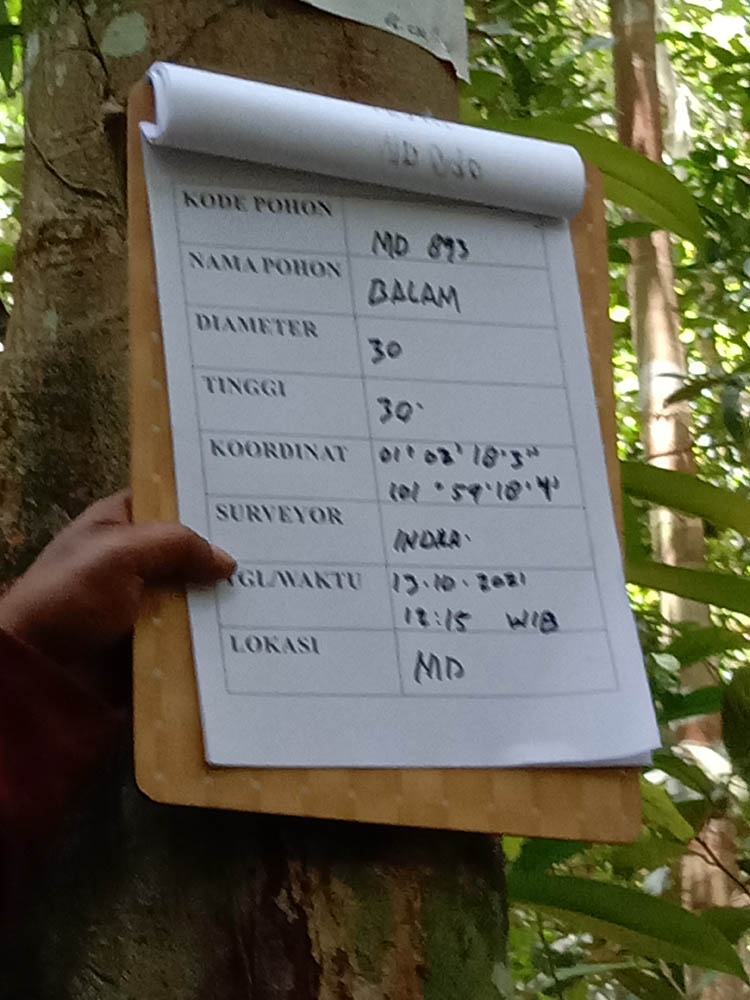 MD 040
KODE POHON MD 893
NAMA POHON BALAM
DIAMETER 30
TINGGI 30
KOORDINAT 01° 02' 18.3"
101° 59' 18.4"
SURVEYOR INDRA.
TGL/WAKTU 13.10.2021
12:15 WIB
LOKASI MD